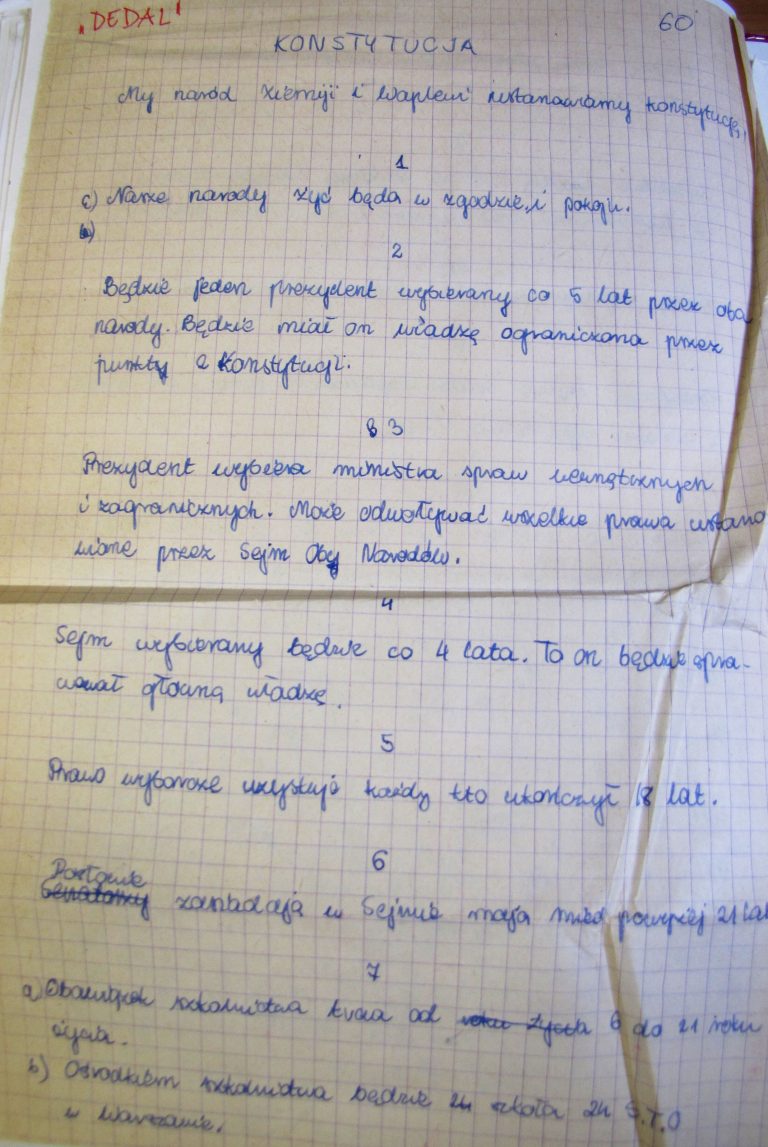 "DEDAL"
60
KONSTYTUCJA
My naród Ziemji i Waplewi ustanawiamy konstytucję,
1
a) Nasze narody żyć będa w zgodzie i pokoju.
b)
2
Będzie jeden prezydent wybierany co 5 lat przez oba
narody. Będzie miał on władzę ograniczona przez
punkty z Konstytucji.
3
Prezydent wybiera ministra spraw wewnątrznych
i zagranicznych. Może odwoływać wszelkie prawa ustano
wione przez Sejm Oby Narodów.
4
Sejm wybierany będzie co 4 lata. To on będzie spra-
wował główną władzę.
5
Prawo wyborcze uzyskuje każdy kto ukończył 18 lat.
6
Posłowie
zasiadają w Sejmie maja mieć powyżej 21 lat
7
a) Obowiązek szkolnictwa trwa od 6 do 21 roku
życia.
b) Osrodkiem szkolnictwa będzie szkoła 24 S.T.O
w Warszawie.